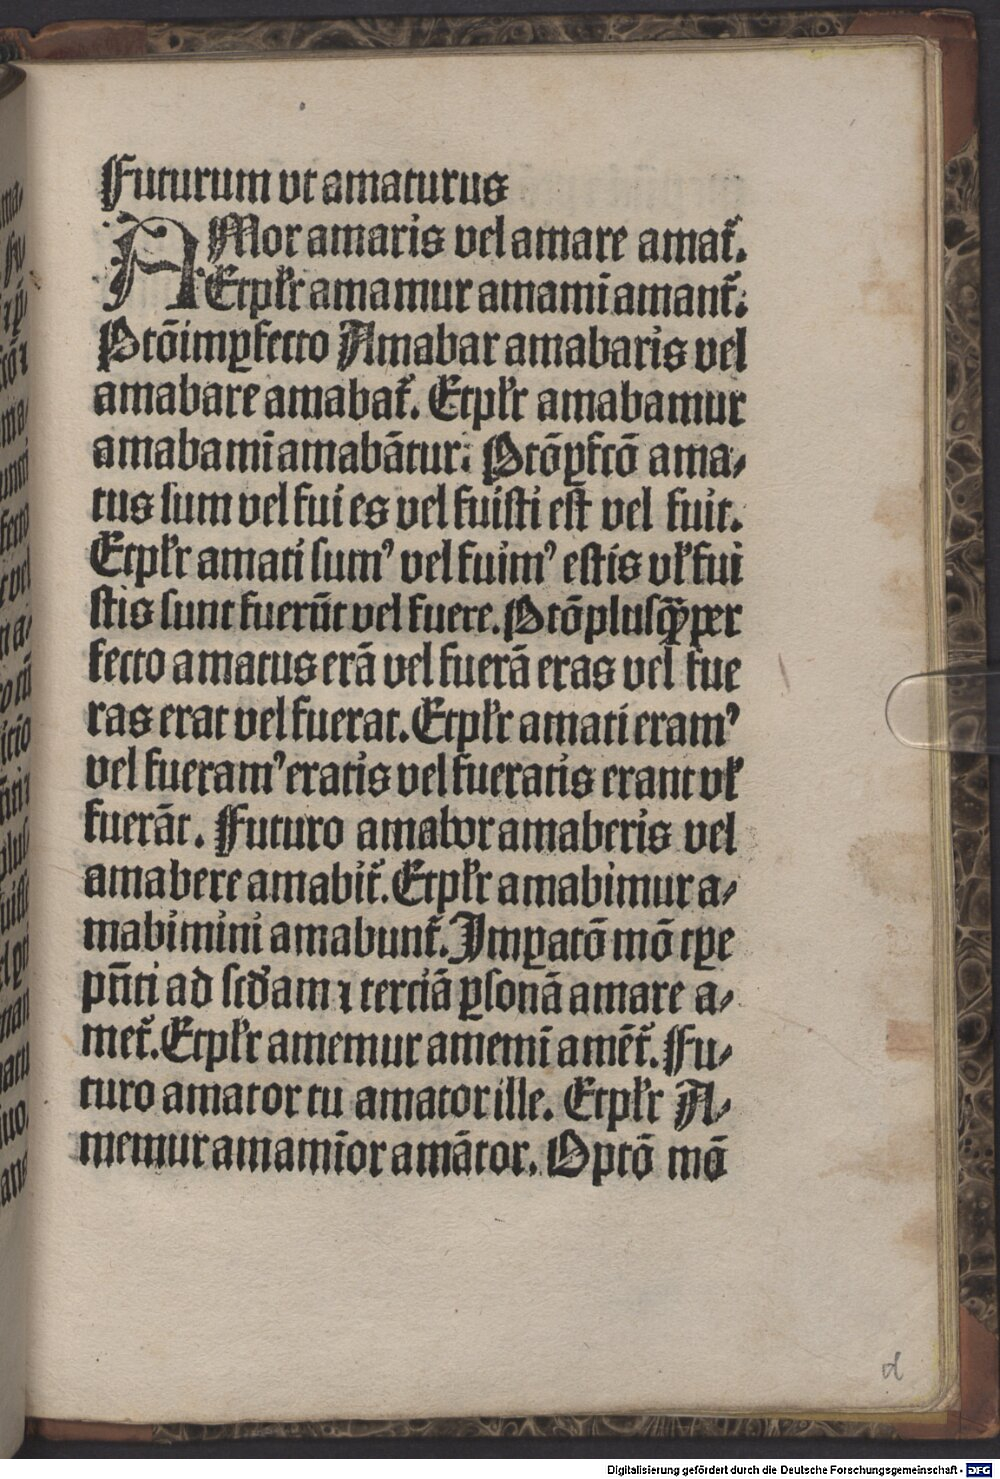 Futurum vt amaturus
AMor amaris vel amare amat̃.
Et pľr amamur amamĩ amant̃:
Ptõ imꝑfecto Amabar amabaris vel
amabare amabat̃. Et pľr amabamur
amabamĩ amabãtur: Ptõ ꝑfctõ ama⸗
tus sum vel fui es vel fuisti est vel fuit.
Et pľr amati sumꝰ vel fuimꝰ estis vľ fui
stis sunt fuerũt vel fuere. Ptõ plusꝗ̃ per
fecto amatus erã vel fuerã eras vel fue
ras erat vel fuerat. Et pľr amati eramꝰ
vel fueramꝰ eratis vel fueratis erant vľ
fuerãt. Futuro amabor amaberis vel
amabere amabit̃. Et pľr amabimur a⸗
mabimini amabunt̃. Imꝑatõ mõ tꝑe
pñti ad scđam ⁊ terciã ꝑsonã amare a⸗
met̃. Et pľr amemur amemĩ amẽt̃. Fu⸗
turo amator tu amator ille. Et pľr A⸗
memur amamĩor amãtor. Optõ mõ
d
Digitalisierung gefördert durch die Deutsche Forschungsgemeinschaft - DFG